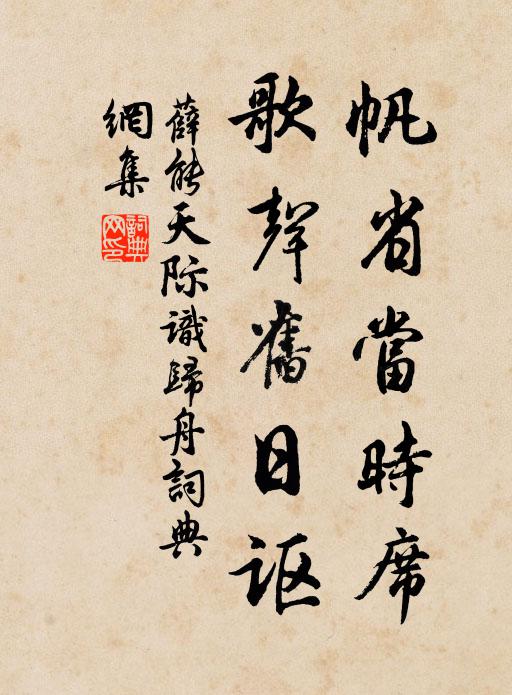 帆省當時席
歌聲舊日讴
薛能天际識歸舟詞典
網集
詞典
网印